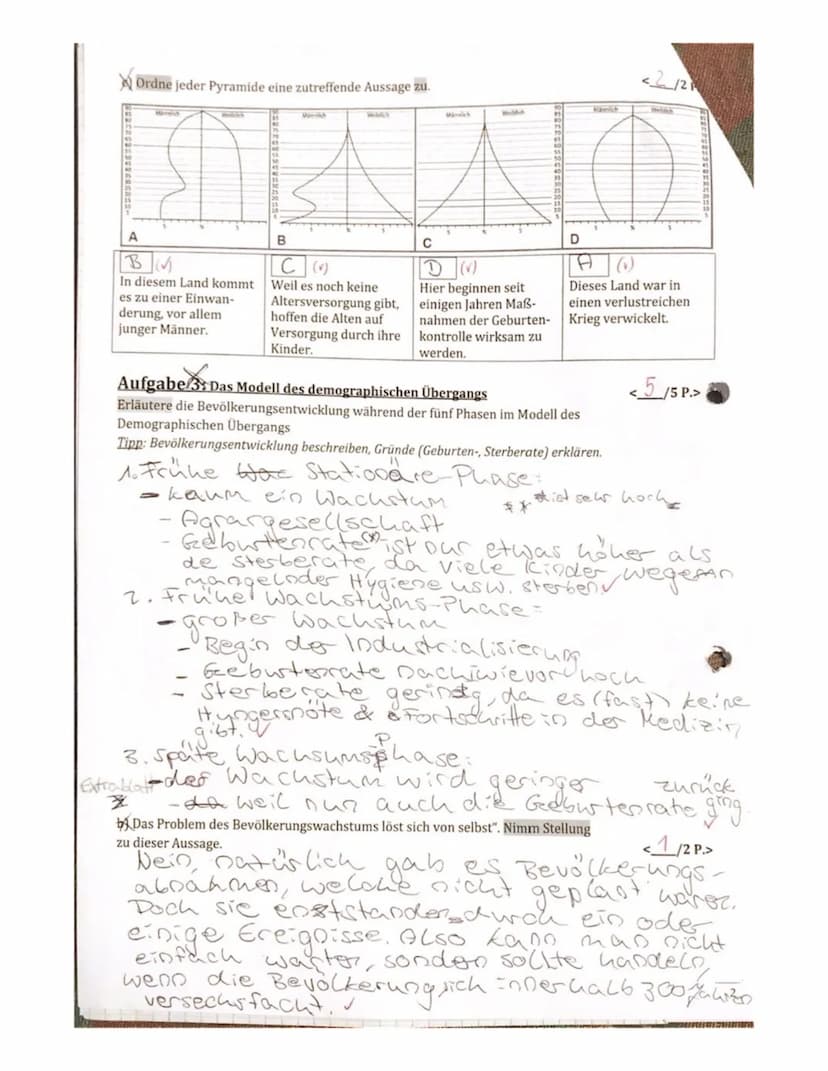 c) Ordne jeder Pyramide eine zutreffende Aussage zu.
< 2 /2 P
Männlich Weiblich
Männlich Weiblich
Männlich Weiblich
Männlich Weiblich
A
B
C
D
B (✓)
In diesem Land kommt
es zu einer Einwan-
derung, vor allem
junger Männer.
C (✓)
Weil es noch keine
Altersversorgung gibt,
hoffen die Alten auf
Versorgung durch ihre
Kinder.
D (✓)
Hier beginnen seit
einigen Jahren Maß-
nahmen der Geburten-
kontrolle wirksam zu
werden.
A (✓)
Dieses Land war in
einen verlustreichen
Krieg verwickelt.
Aufgabe 3: Das Modell des demographischen Übergangs
< 5 /5 P.>
Erläutere die Bevölkerungsentwicklung während der fünf Phasen im Modell des
Demographischen Übergangs
Tipp: Bevölkerungsentwicklung beschreiben, Gründe (Geburten-, Sterberate) erklären.
1. Frühe Stationäre-Phase:
- kaum ein Wachstum
** ist sehr hoch
- Agrargesellschaft
- Geburtenrate(*) ist nur etwas höher als
de sterberate, da viele Kinder wegen
mangelnder Hygiene usw. sterben ✓
2. Frühe Wachstums-Phase:
- großer Wachstum
- Begin der Industrialisierung
- Geburtenrate nachwievor hoch
- Sterberate gering, da es (fast) keine
Hungersnöte & Fortschritte in der Medizin
gibt. ✓
3. späte Wachsumsphase:
Extrablatt
- der Wachstum wird geringer
- da weil nun auch die Geburtenrate zurück
ging. ✓
b) „Das Problem des Bevölkerungswachstums löst sich von selbst". Nimm Stellung
zu dieser Aussage.
< 1 /2 P.>
Nein, natürlich gab es Bevölkerungs-
abnahmen, welche nicht geplant waren.
Doch sie entstanden durch ein oder
einige Ereignisse. Also kann man nicht
einfach warten, sondern sollte handeln,
wenn die Bevölkerung sich innerhalb 300 Jahren
versechsfacht. ✓